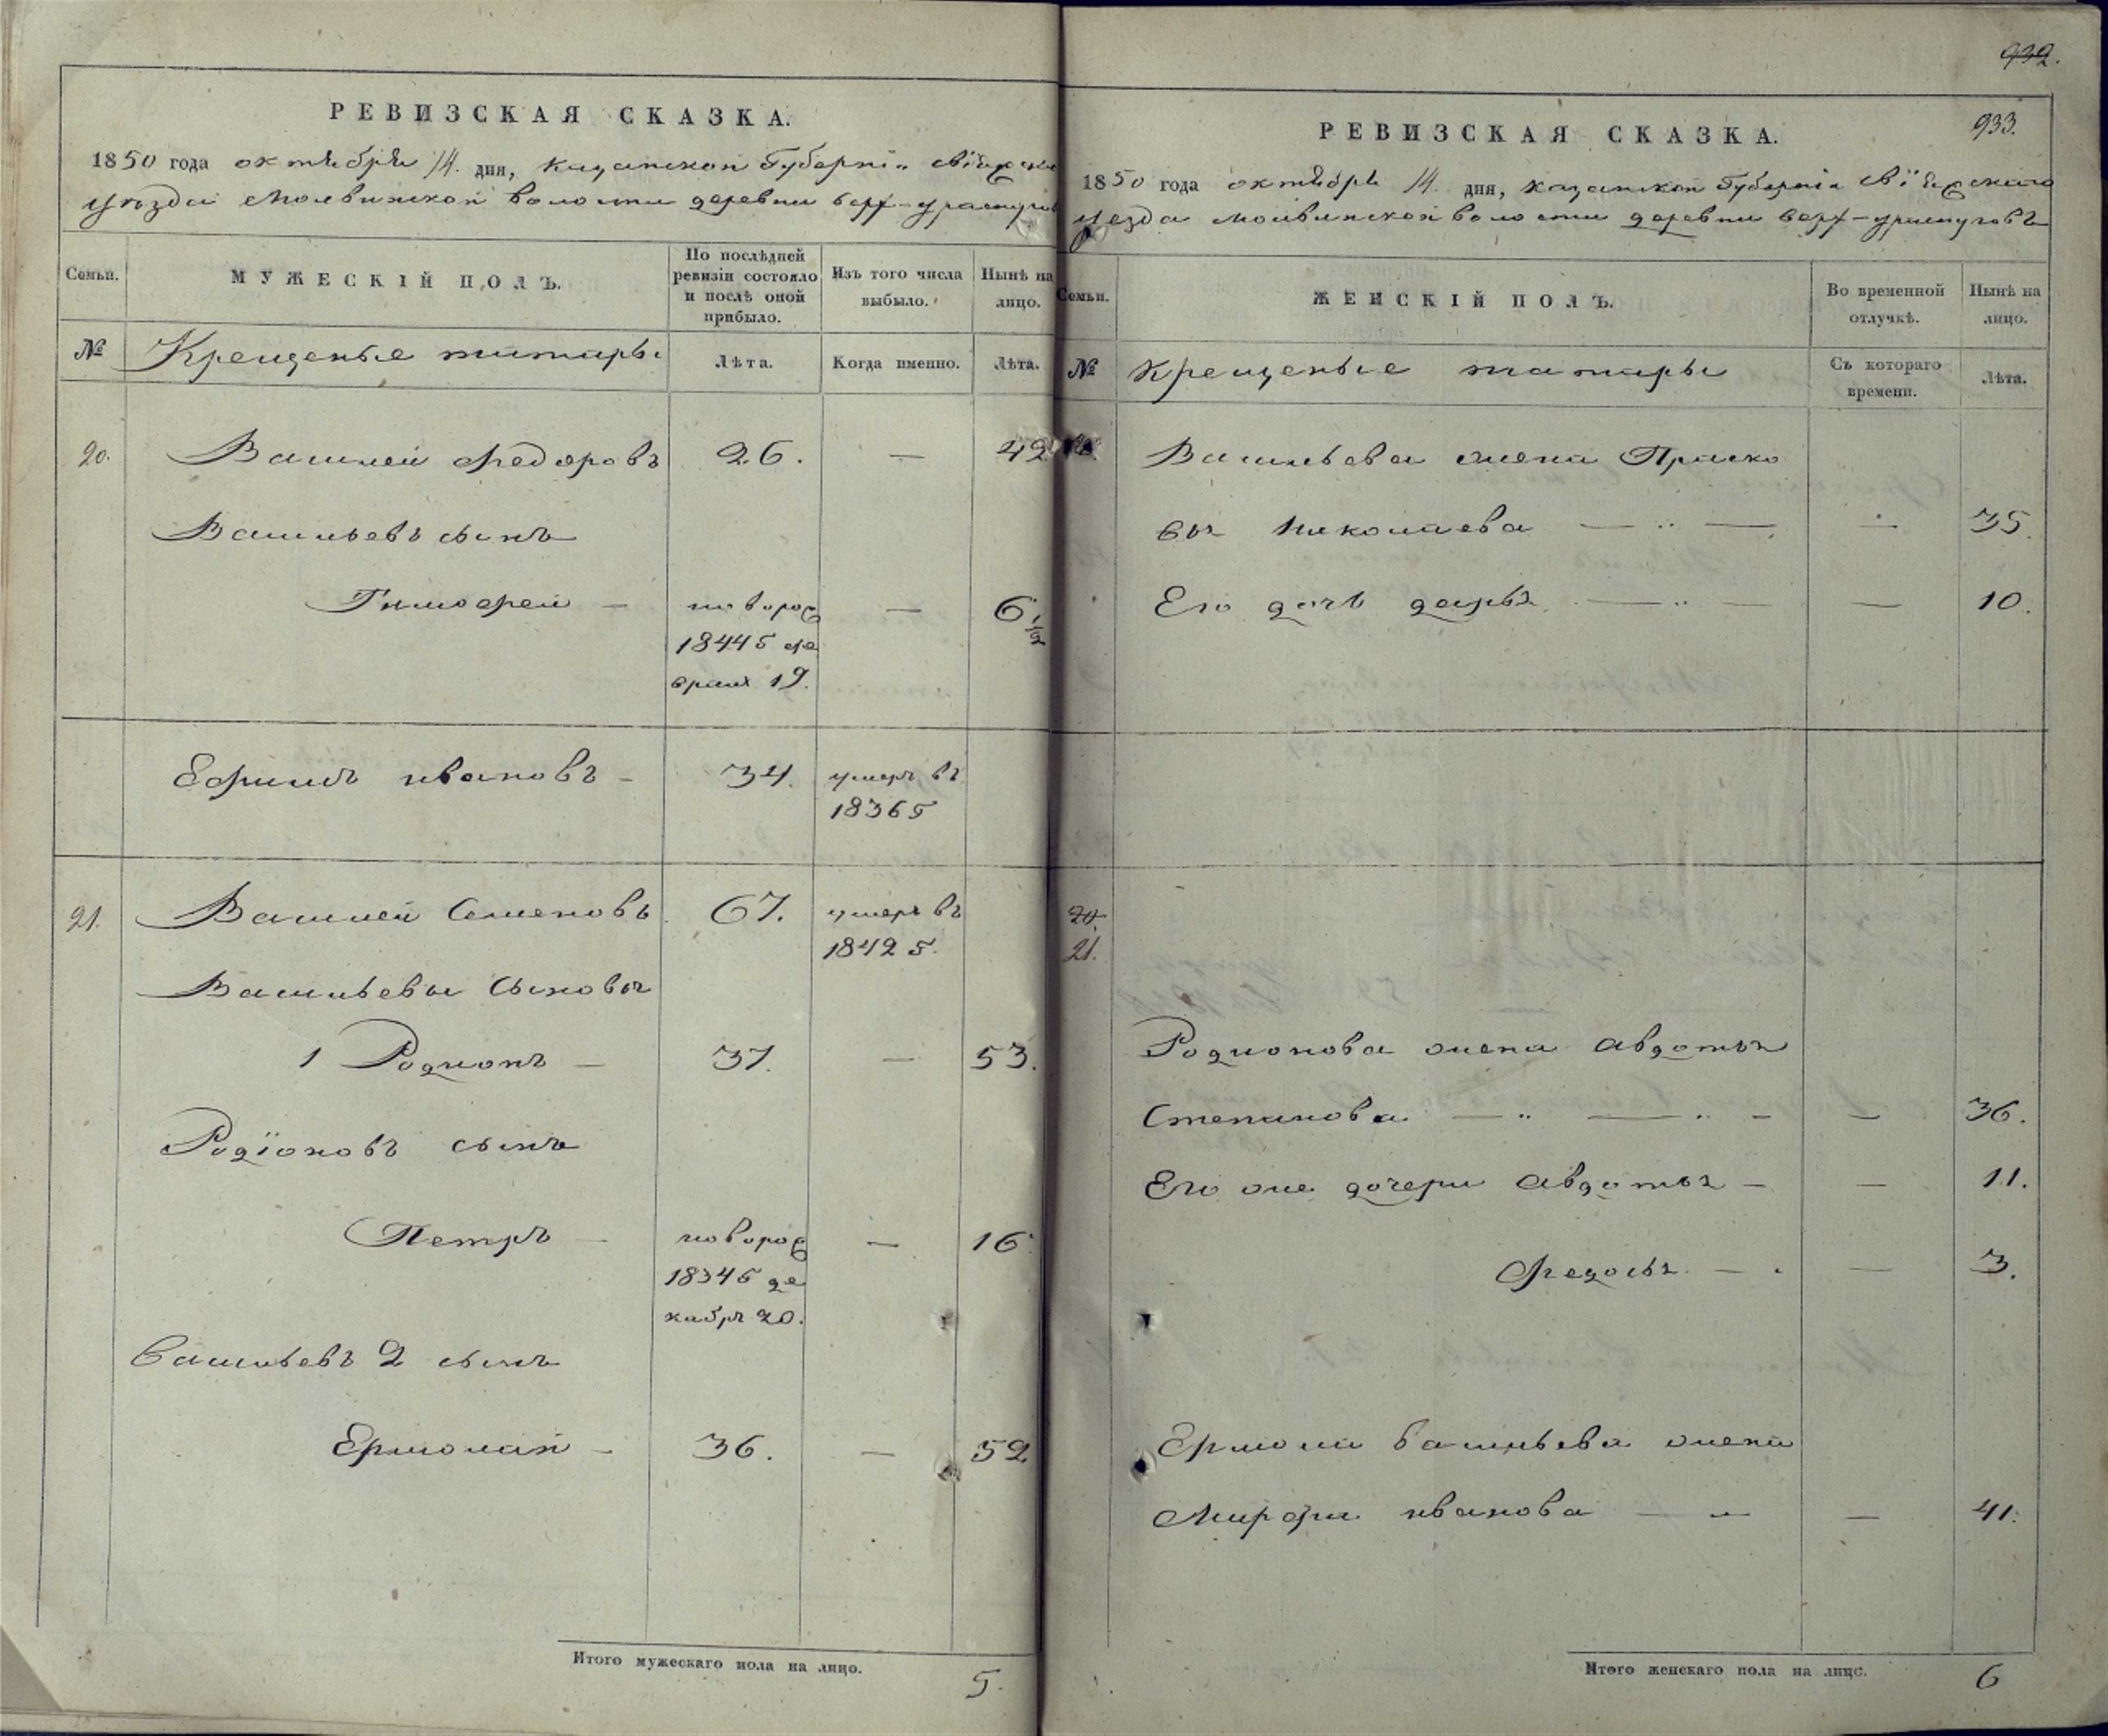 РЕВИЗСКАЯ СКАЗКА.
1850 года октября 14. дня, казанской Губерніи свіяжска
уѣзда молвинской волости деревни верх-ураспугов
Семьи.
МУЖЕСКІЙ ПОЛЪ.
По послѣдней ревизіи состояло и послѣ оной прибыло.
Изъ того числа выбыло.
Нынѣ на лицо.
№ Крещеные татары Лѣта. Когда именно. Лѣта.
20. Василей Федоровъ 26. — 42
Васильевъ сынъ
Тимофей — новорож — 6 1/2
1844 г фе
враля 19.
Ефимъ ивановъ — 34. умеръ въ
1836 г
21. Василей Семеновъ 67. умеръ въ
1842 г.
Васильевы сыновья
1 Родионъ — 37. — 53.
Родіоновъ сынъ
Петръ — новорож — 16.
1834 г де
кабря 20.
Васильевъ 2 сынъ
Ермолай — 36. — 52
Итого мужескаго пола на лицо. 5.
932.
933.
РЕВИЗСКАЯ СКАЗКА.
1850 года октября 14. дня, казанской Губерніи свіяжскаго
уезда молвинской волости деревни верх-ураспуговъ
Семьи.
ЖЕНСКІЙ ПОЛЪ.
Во временной отлучкѣ.
Нынѣ на лицо.
№ крещеные татары Съ котораго времени. Лѣта.
Васильева жена Праско
вья Николаева — — 35.
Его дочь дарья — — 10.
20.
21.
Родионова жена авдотья
Степанова — — 36.
Его же дочери авдотья — — 11.
Федосья — — 3.
Ермолая васильева жена
Марфа иванова — — 41.
Итого женскаго пола на лицо. 6